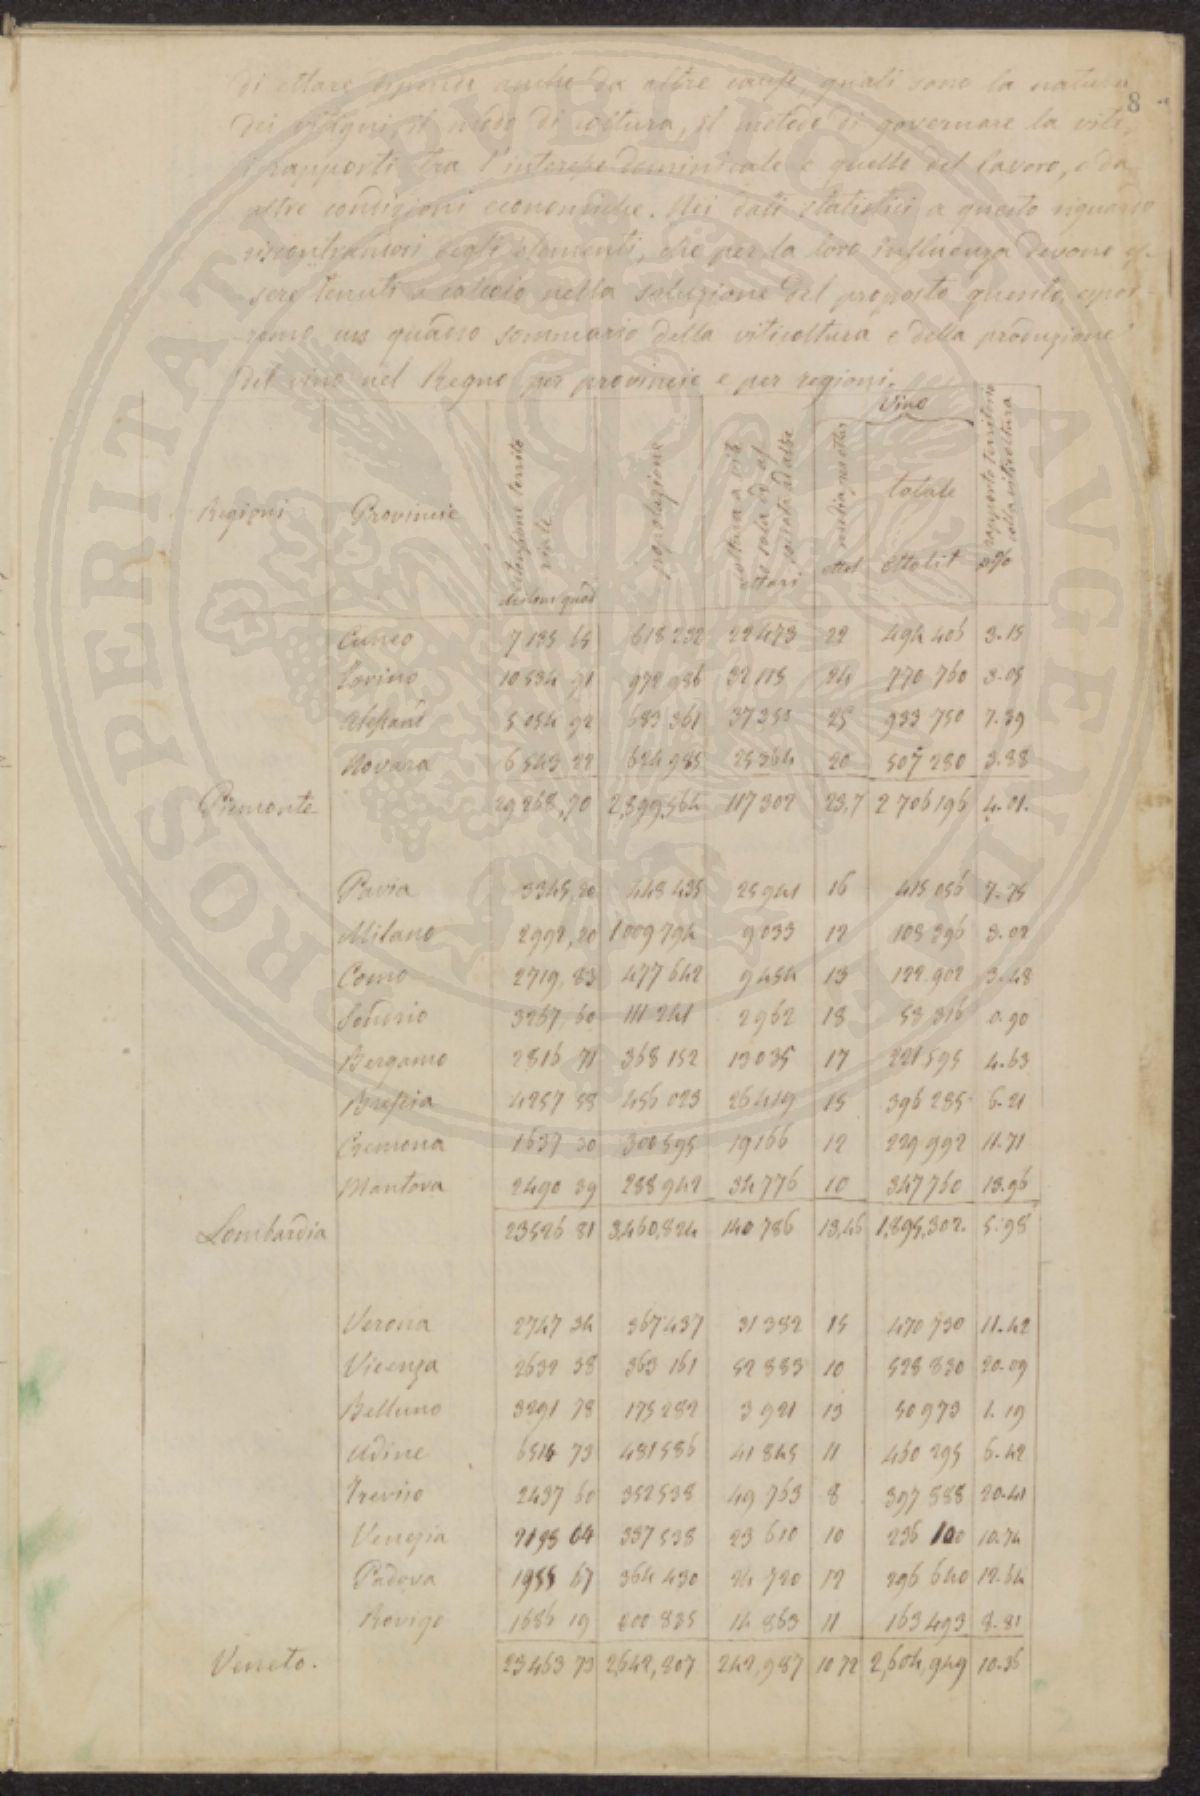 8
di ettare dipende anche da altre cause, quali sono la natura
dei vitigni, il modo di coltura, il metodo di governare la vite,
i rapporti tra l'interesse dominicale e quello del lavoro, e da
altre condizioni economiche. Nei dati statistici a questo riguardo
riscontriamo degli elementi, che per la loro influenza devono es-
sere tenuti a calcolo nella soluzione del proposto quesito, espor-
remo un quadro sommario della viticoltura e della produzione
del vino nel Regno per provincie e per regioni.
Regioni Provincie estensione territoriale popolazione Vino totale
ettari ettol ettolit %
Cuneo 7135 65 618 232 22473 22 494 406 3.15
Torino 10534 91 972 986 32115 24 770 760 3.05
Alessand 5054 92 683 361 37350 25 933 750 7.39
Novara 6543 22 624 985 25364 20 507 280 3.88
Piemonte 29268,70 2,899,564 117302 23,7 2706196 4.01.
Pavia 3345,20 448 435 25941 16 415 056 7.75
Milano 2992,20 1009794 9033 12 108 396 3.02
Como 2719,83 477642 9454 13 122.902 3.48
Sondrio 3267,60 111 241 2962 18 53 316 0.90
Bergamo 2816 71 368 152 13035 17 221595 4.63
Brescia 4257 58 456 023 26419 15 396 285 6.21
Cremona 1637 30 300595 19166 12 229 992 11.71
Mantova 2490 39 288942 34776 10 347760 13.96
Lombardia 23526 81 3,460,824 140786 13,46 1,895,302. 5.98
Verona 2747 34 367437 31382 15 470730 11.42
Vicenza 2632 38 363 161 52883 10 528830 20.09
Belluno 3291 78 175282 3921 13 50973 1.19
Udine 6514 73 481586 41845 11 460 295 6.42
Treviso 2437 60 352538 49763 8 397 588 20.41
Venezia 2198 04 337538 23610 10 236 100 10.74
Padova 1955 67 364430 24720 12 296 640 12.64
Rovigo 1686 19 200835 14863 11 163493 8.81
Veneto. 23463 73 2,642,807 242,987 10 72 2,604,949 10.36
PROSPERITATI PVBLICAE AVGENDAE